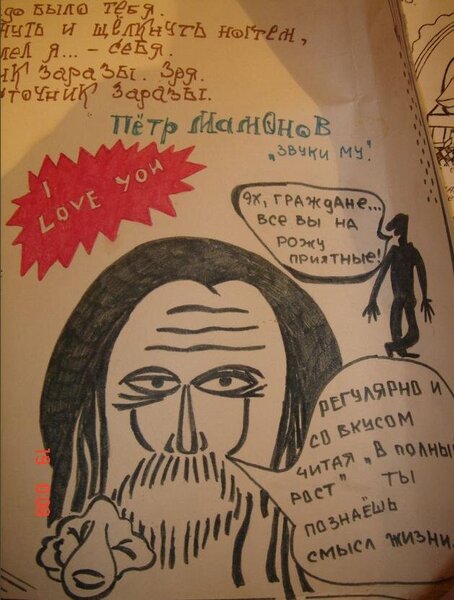 до было тебя.
нуть и щёлкнуть ногтем,
я... – себя.
ик заразы. Зря.
точник заразы.
Пётр Мамонов
„Звуки Му".
I
LOVE YOU
Эх, граждане...
все вы на
рожу
приятные!
Регулярно и
со вкусом
читая „В полный
рост" ты
познаёшь
смысл жизни.